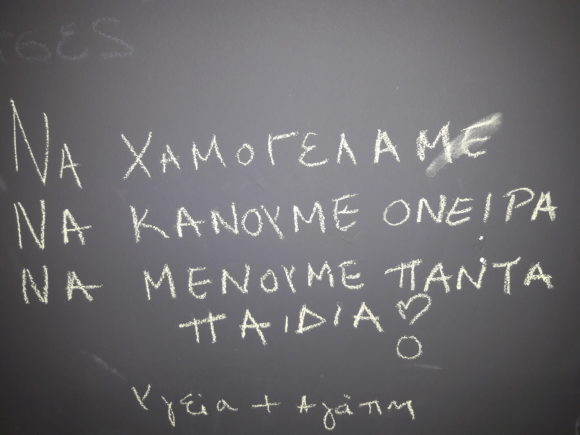 ΝΑ ΧΑΜΟΓΕΛΑΜΕ
ΝΑ ΚΑΝΟΥΜΕ ΟΝΕΙΡΑ
ΝΑ ΜΕΝΟΥΜΕ ΠΑΝΤΑ
ΠΑΙΔΙΑ
Υγεία + Αγάπη